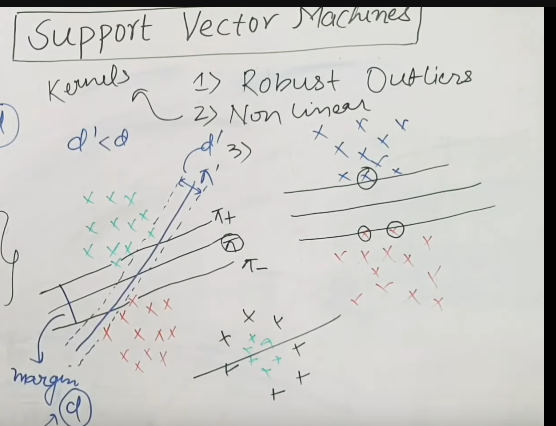 Support Vector Machines
Kernels
1) Robust Outliers
2) Non linear
d' < d
d'
3)
π'
π+
π
π-
margin
d